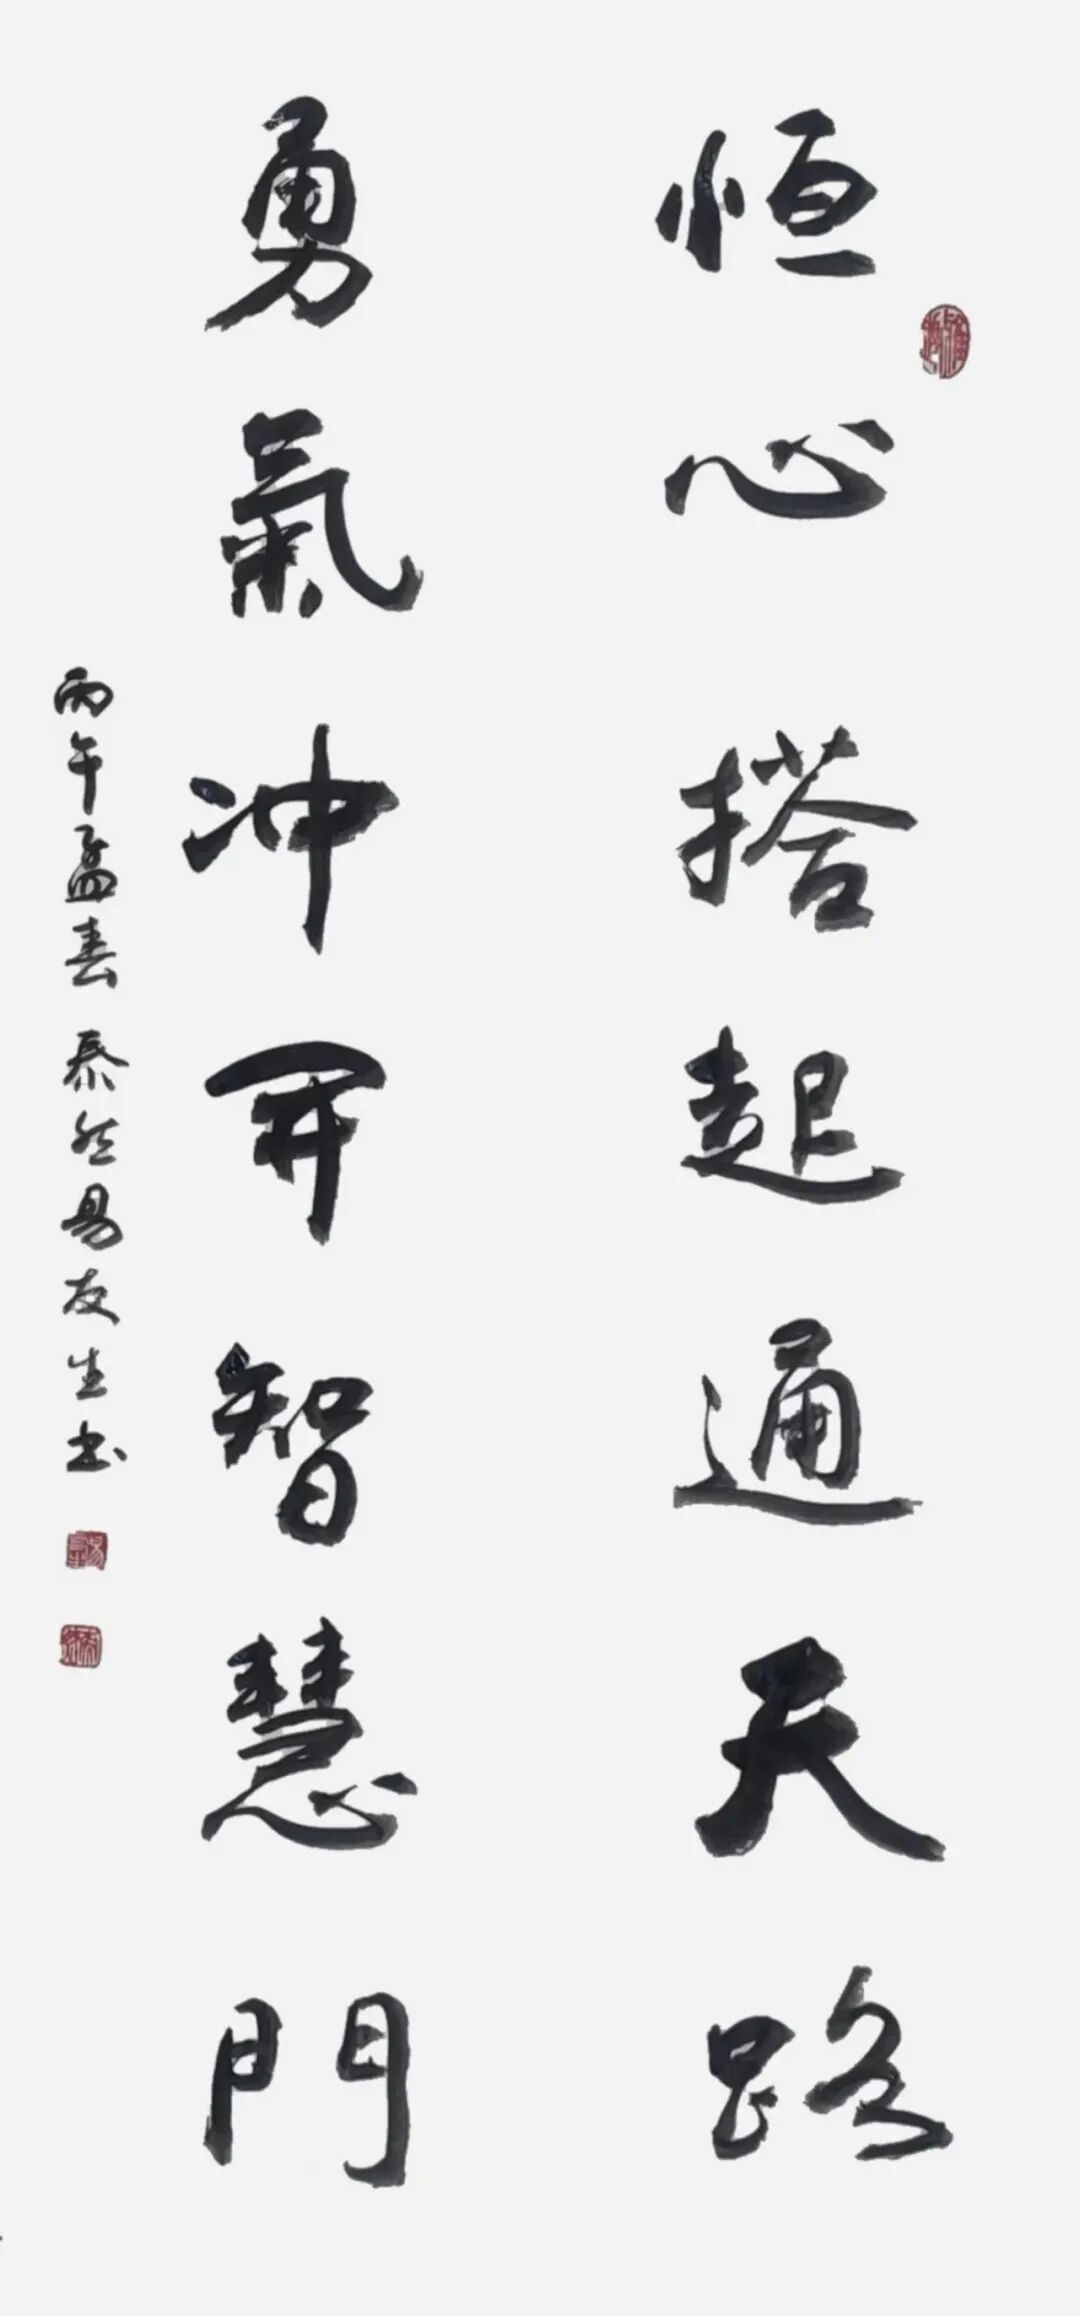 恒心搭起通天路
勇氣冲開智慧門
丙午孟春 泰然易友生书